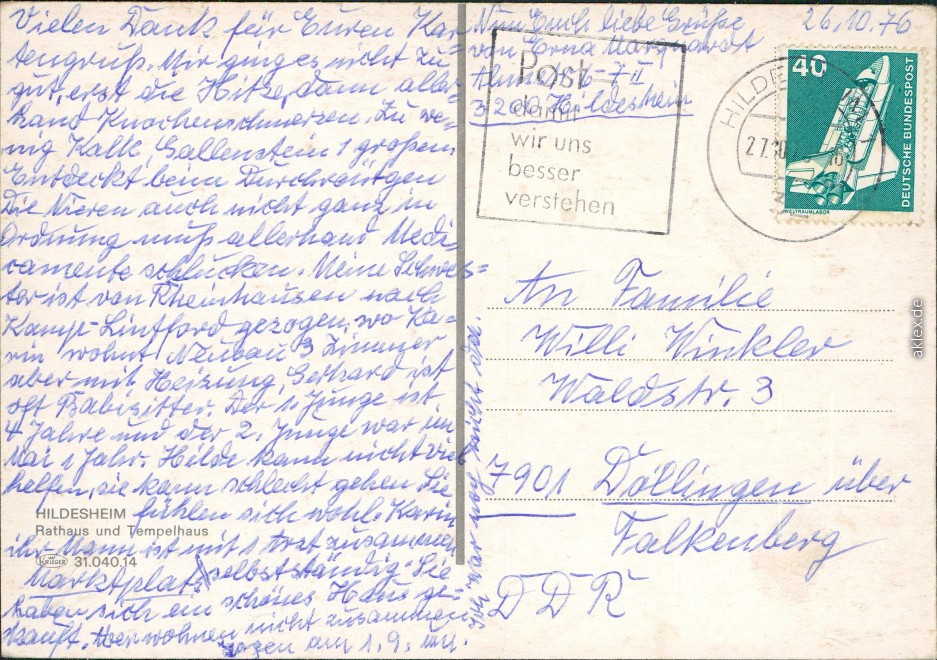 Vielen Dank für Euren Kar=
tengruß. Mir ging es nicht zu
gut, erst die Hitze, dann aller=
hand Knochenschmerzen. Zu we=
nig Kalk, Gallenstein 1 großen
Entdeckt beim Durchröntgen
Die Nieren auch nicht ganz in
Ordnung muß allerhand Medi=
camente schlucken. Meine Schwes=
ter ist von Rheinhausen nach
Kamp-Lintford gezogen, wo Ka=
rin wohnt Neubau 3 Zimmer
aber mit Heizung, Gerhard ist
oft Babisitter. Der 1. Junge ist
4 Jahre und der 2. Junge war im
Mai 1 Jahr. Hilde kann nicht viel
helfen, sie kann schlecht gehen Sie
fühlen sich wohl. Karin
ihr Mann ist mit 1 Arzt zusammen
selbstständig. Sie
haben sich ein schönes Haus ge=
kauft. Aber wohnen nicht zusammen
zogen am 1.9. um.
HILDESHEIM
Rathaus und Tempelhaus
KRÜGER 31.040.14
Marktplatz
Nun Euch liebe Grüße
von Erna Marquardt
6-7 II
3200 Hildesheim
26.10.76
Post
damit
wir uns
besser
verstehen
HILDE
27.10
40
DEUTSCHE BUNDESPOST
WELTRAUMLABOR
An Familie
Willi Winkler
Waldstr. 3
7901 Döllingen über
Falkenberg
DDR
akpool.de